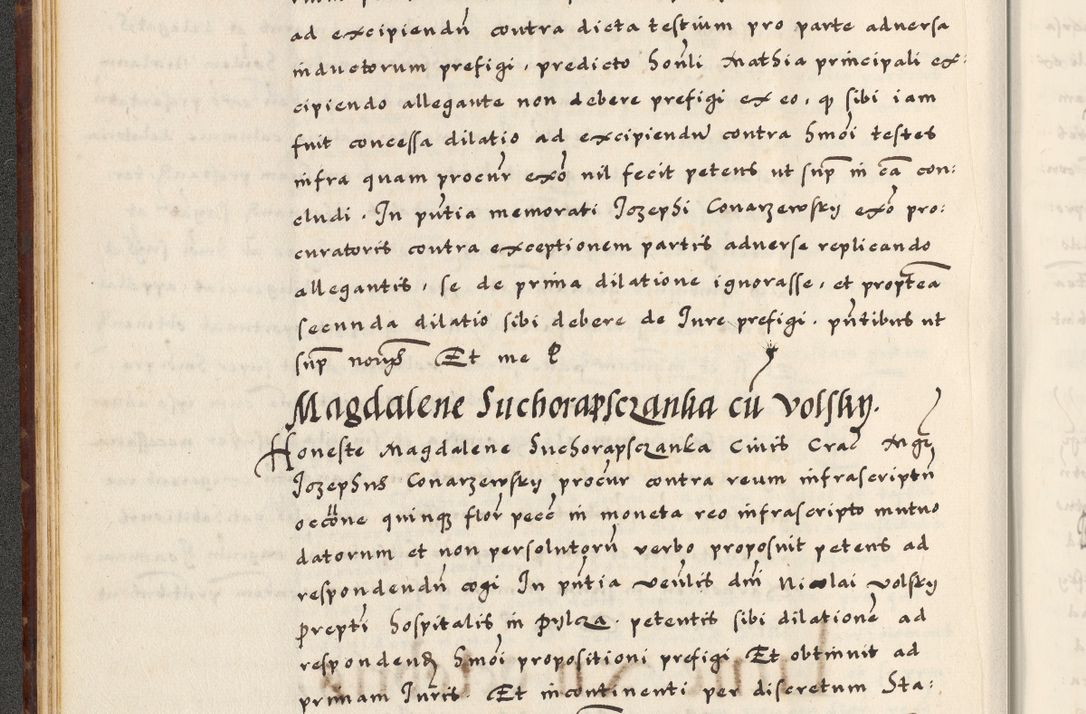 ad excipiendn̄ contra dicta testium pro parte adversa
inductorum prefigi, predicto honn̄li Mathia principali ex:
cipiendo allegante non debere prefigi ex eo, q sibi iam
fuit concessa dilatio ad excipiendū contra hm̄oi testes
infra quam procur̄ exo͞ nil fecit petens ut sup̄ in cā con:
cludi. In pn̄tia memorati Iozephi Conarzewsky exo͞ pro:
curatoris contra exceptionem partis adverse replicando
allegantis, se de prima dilatione ignorasse, et propt̄ea
secunda dilatio sibi debere de Iure prefigi. pn̄tibus ut
sup̄ Et me
Magdalene Suchorapsczanka cū Volsky.
Honeste Magdalene Suchorapsczanka Civis Crac̄ Mgr̄
Iozephus Conarzewsky procur̄ contra reum infrascriptn̄
occ͞one quinq flor̄ pecc̄ in moneta reo infrascripto mutuo
datorum et non persolutorn̄ verbo proposuit petens ad
respondendn̄ cogi In pn̄tia ven̄lis dm̄i Nicolai Volsky
prepti̅ hospitalis in Pylcza. petentis sibi dilationē ad
respondend hm̄oi propositioni prefigi Et obtinuit ad
primam Iuris. Et incontinenti per discretum Sta: